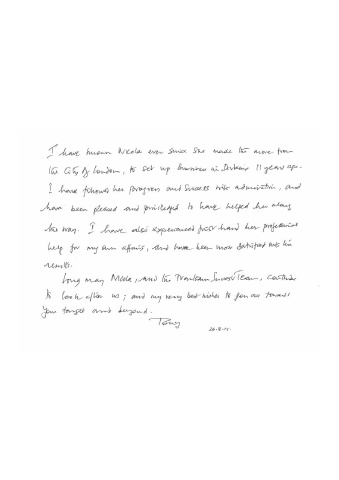 I have known Nicola ever since she made the move from
the City of London, to set up business in 11 years ago.
I have followed her progress and success with admiration, and
have been pleased and privileged to have helped her along
the way. I have also experienced first hand her professional
help for my own affairs, and have been more satisfied with the
results.
Long may Nicola, and the Team, continue
to look after us; and my very best wishes to you towards
your target and beyond.
Tony